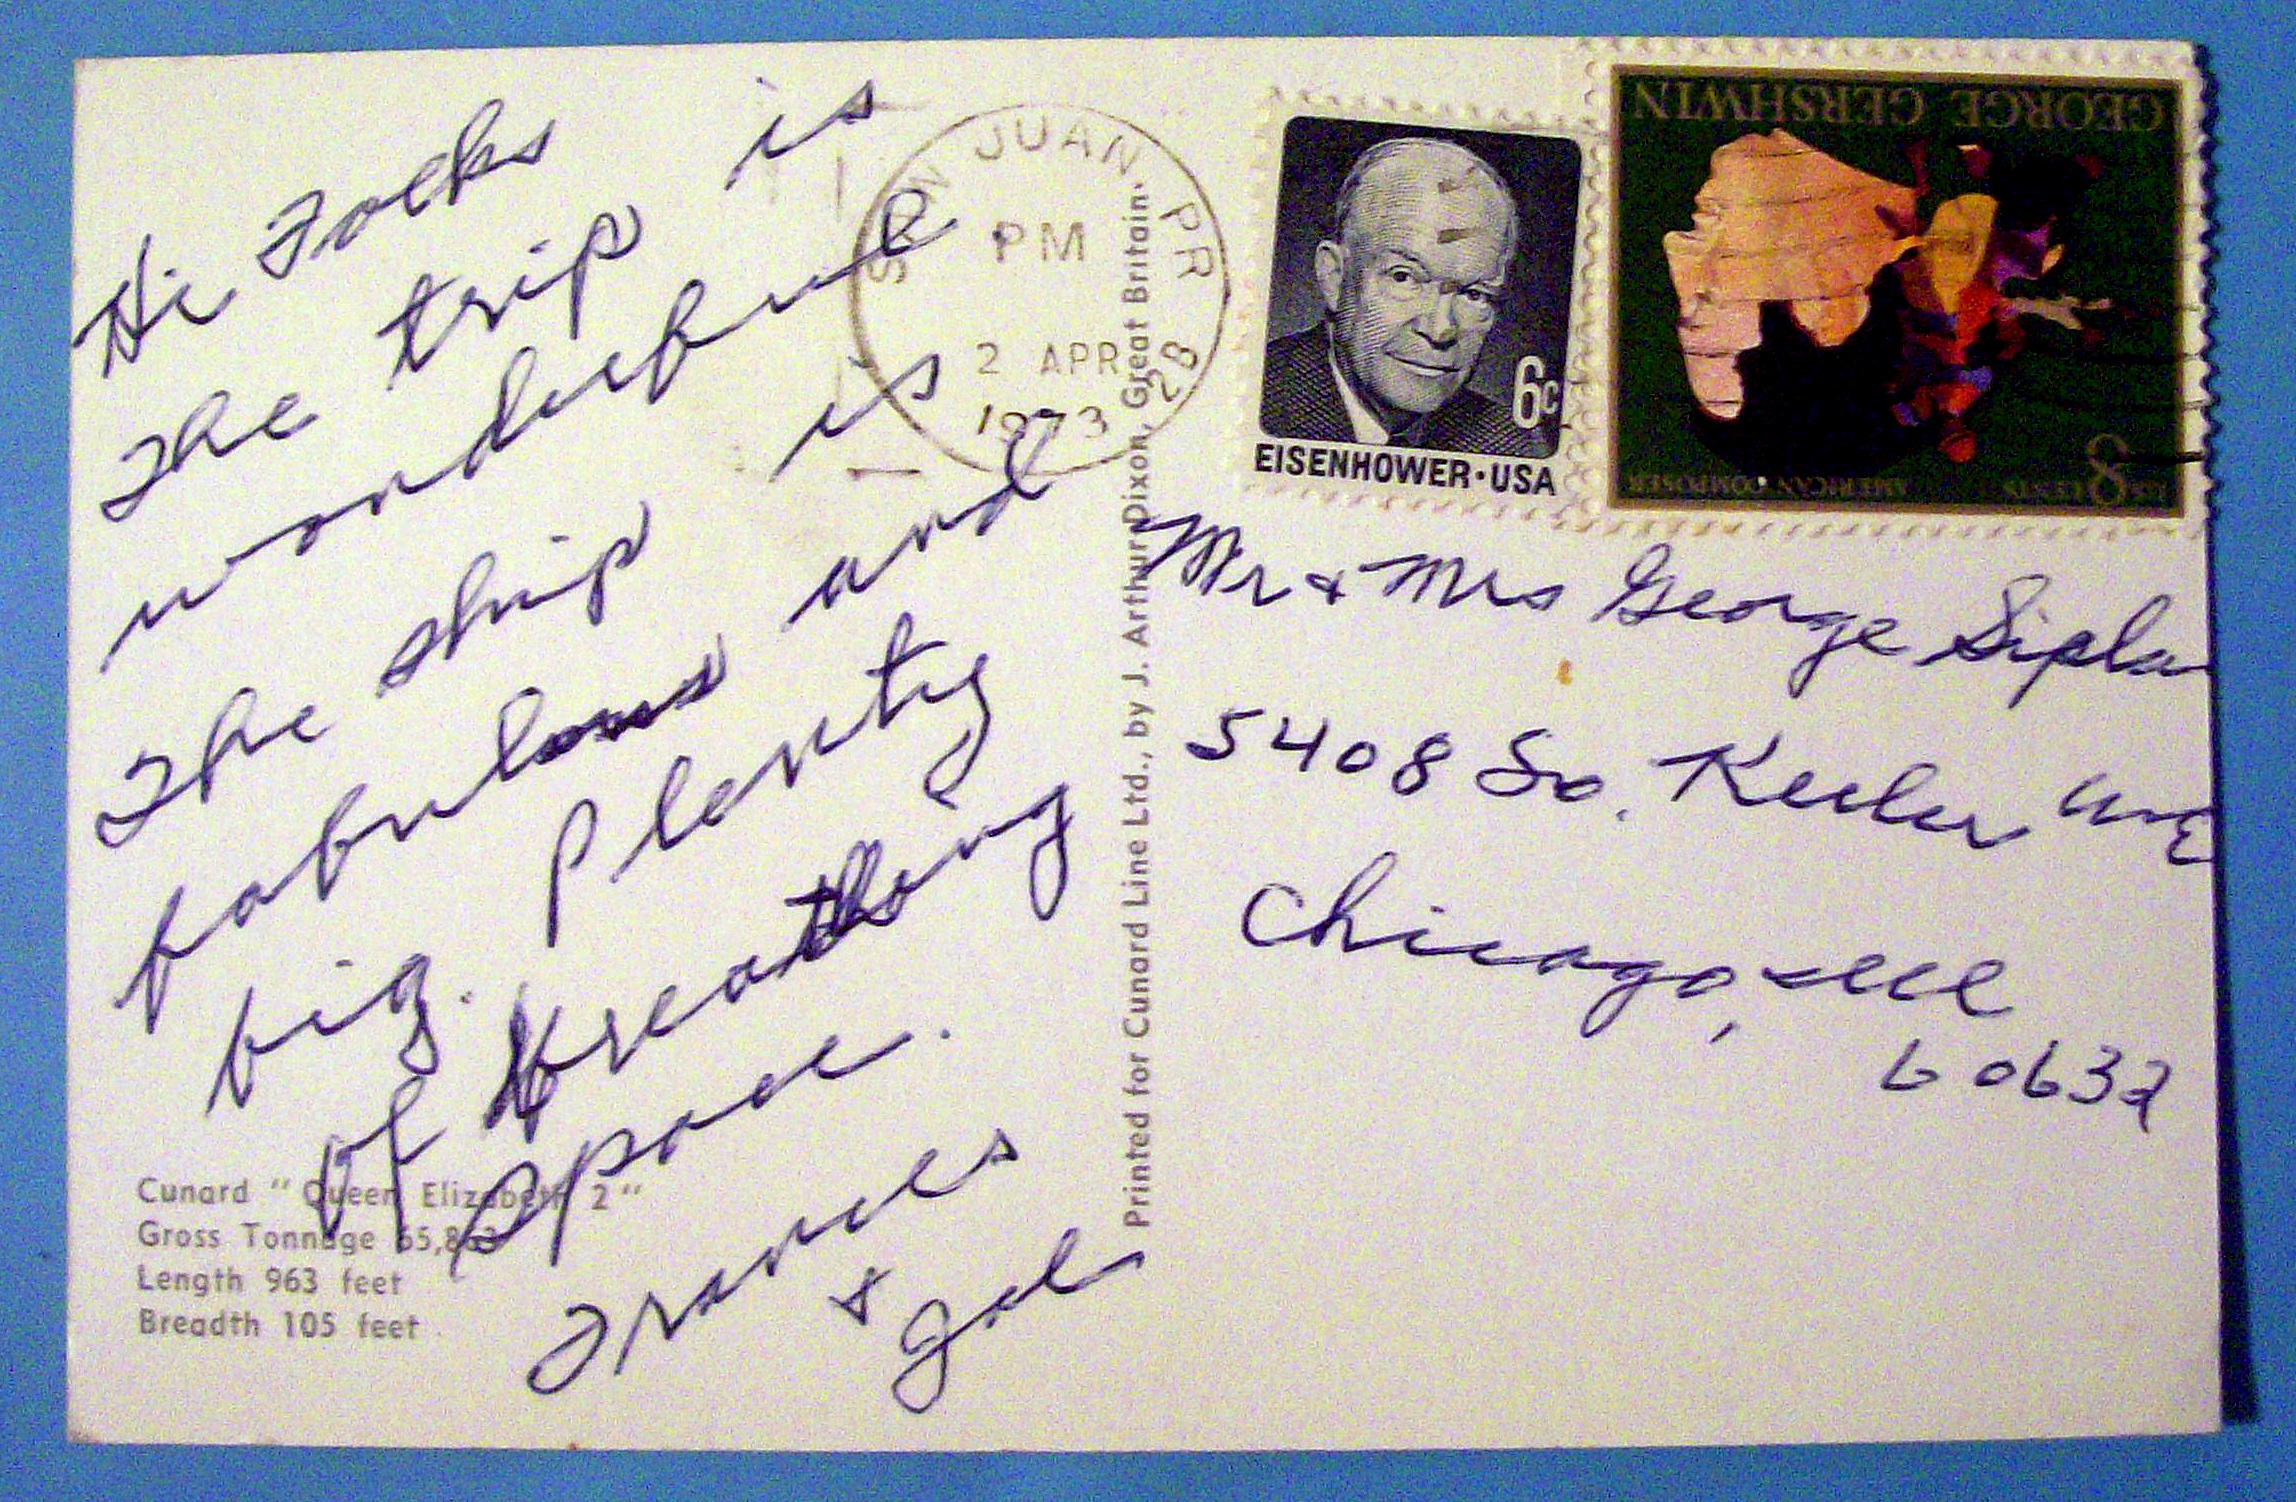 Hi Folks
The trip is
wonderful
The ship is
fabulous and
big. Plenty
of breathing
space.
Frances
&
Cunard "Queen Elizabeth 2"
Gross Tonnage 65,863
Length 963 feet
Breadth 105 feet
Printed for Cunard Line Ltd., by J. Arthur Dixon, Great Britain.
SAN JUAN, PR
PM
2 APR
1973
2B
6c
EISENHOWER·USA
GEORGE GERSHWIN
AMERICAN COMPOSER
US 8 CENTS
Mr & Mrs George
5408 So. Keeler Ave
Chicago, Ill
60632